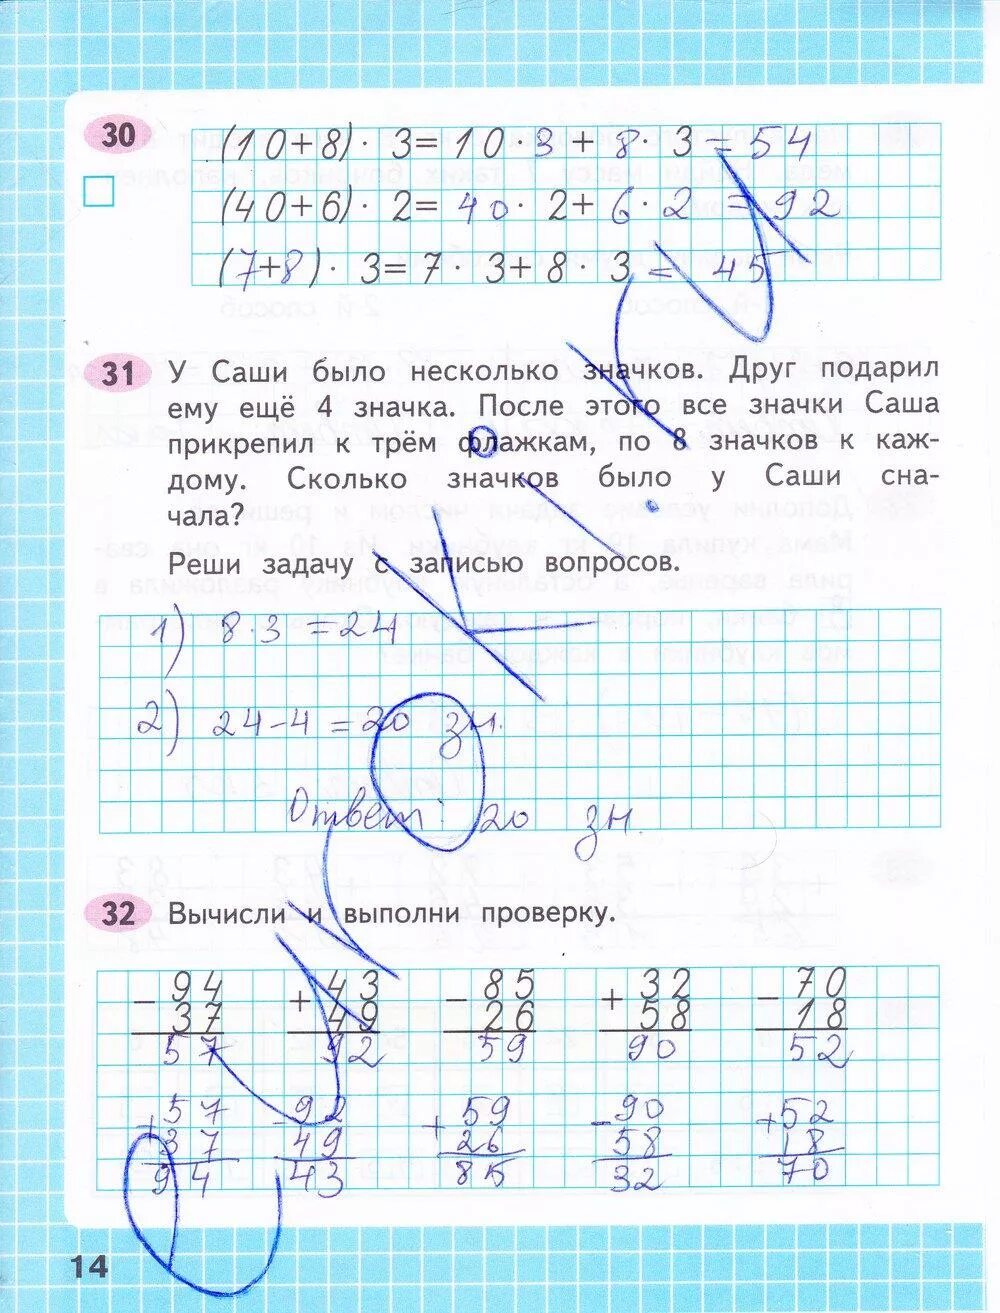 30
(10+8)· 3=10·3+8·3=54
(40+6)· 2=40·2+6·2=92
(7+8)· 3=7·3+8·3=45
31 У Саши было несколько значков. Друг подарил
ему ещё 4 значка. После этого все значки Саша
прикрепил к трём флажкам, по 8 значков к каж-
дому. Сколько значков было у Саши сна-
чала?
Реши задачу с записью вопросов.
1) 8·3 =24
2) 24-4=20 зн.
Ответ: 20 зн.
32 Вычисли и выполни проверку.
- 94 + 43 - 85 + 32 - 70
37 49 26 58 18
57 92 59 90 52
+ 57 - 92 + 59 - 90 + 52
37 49 26 58 18
94 43 85 32 70
14